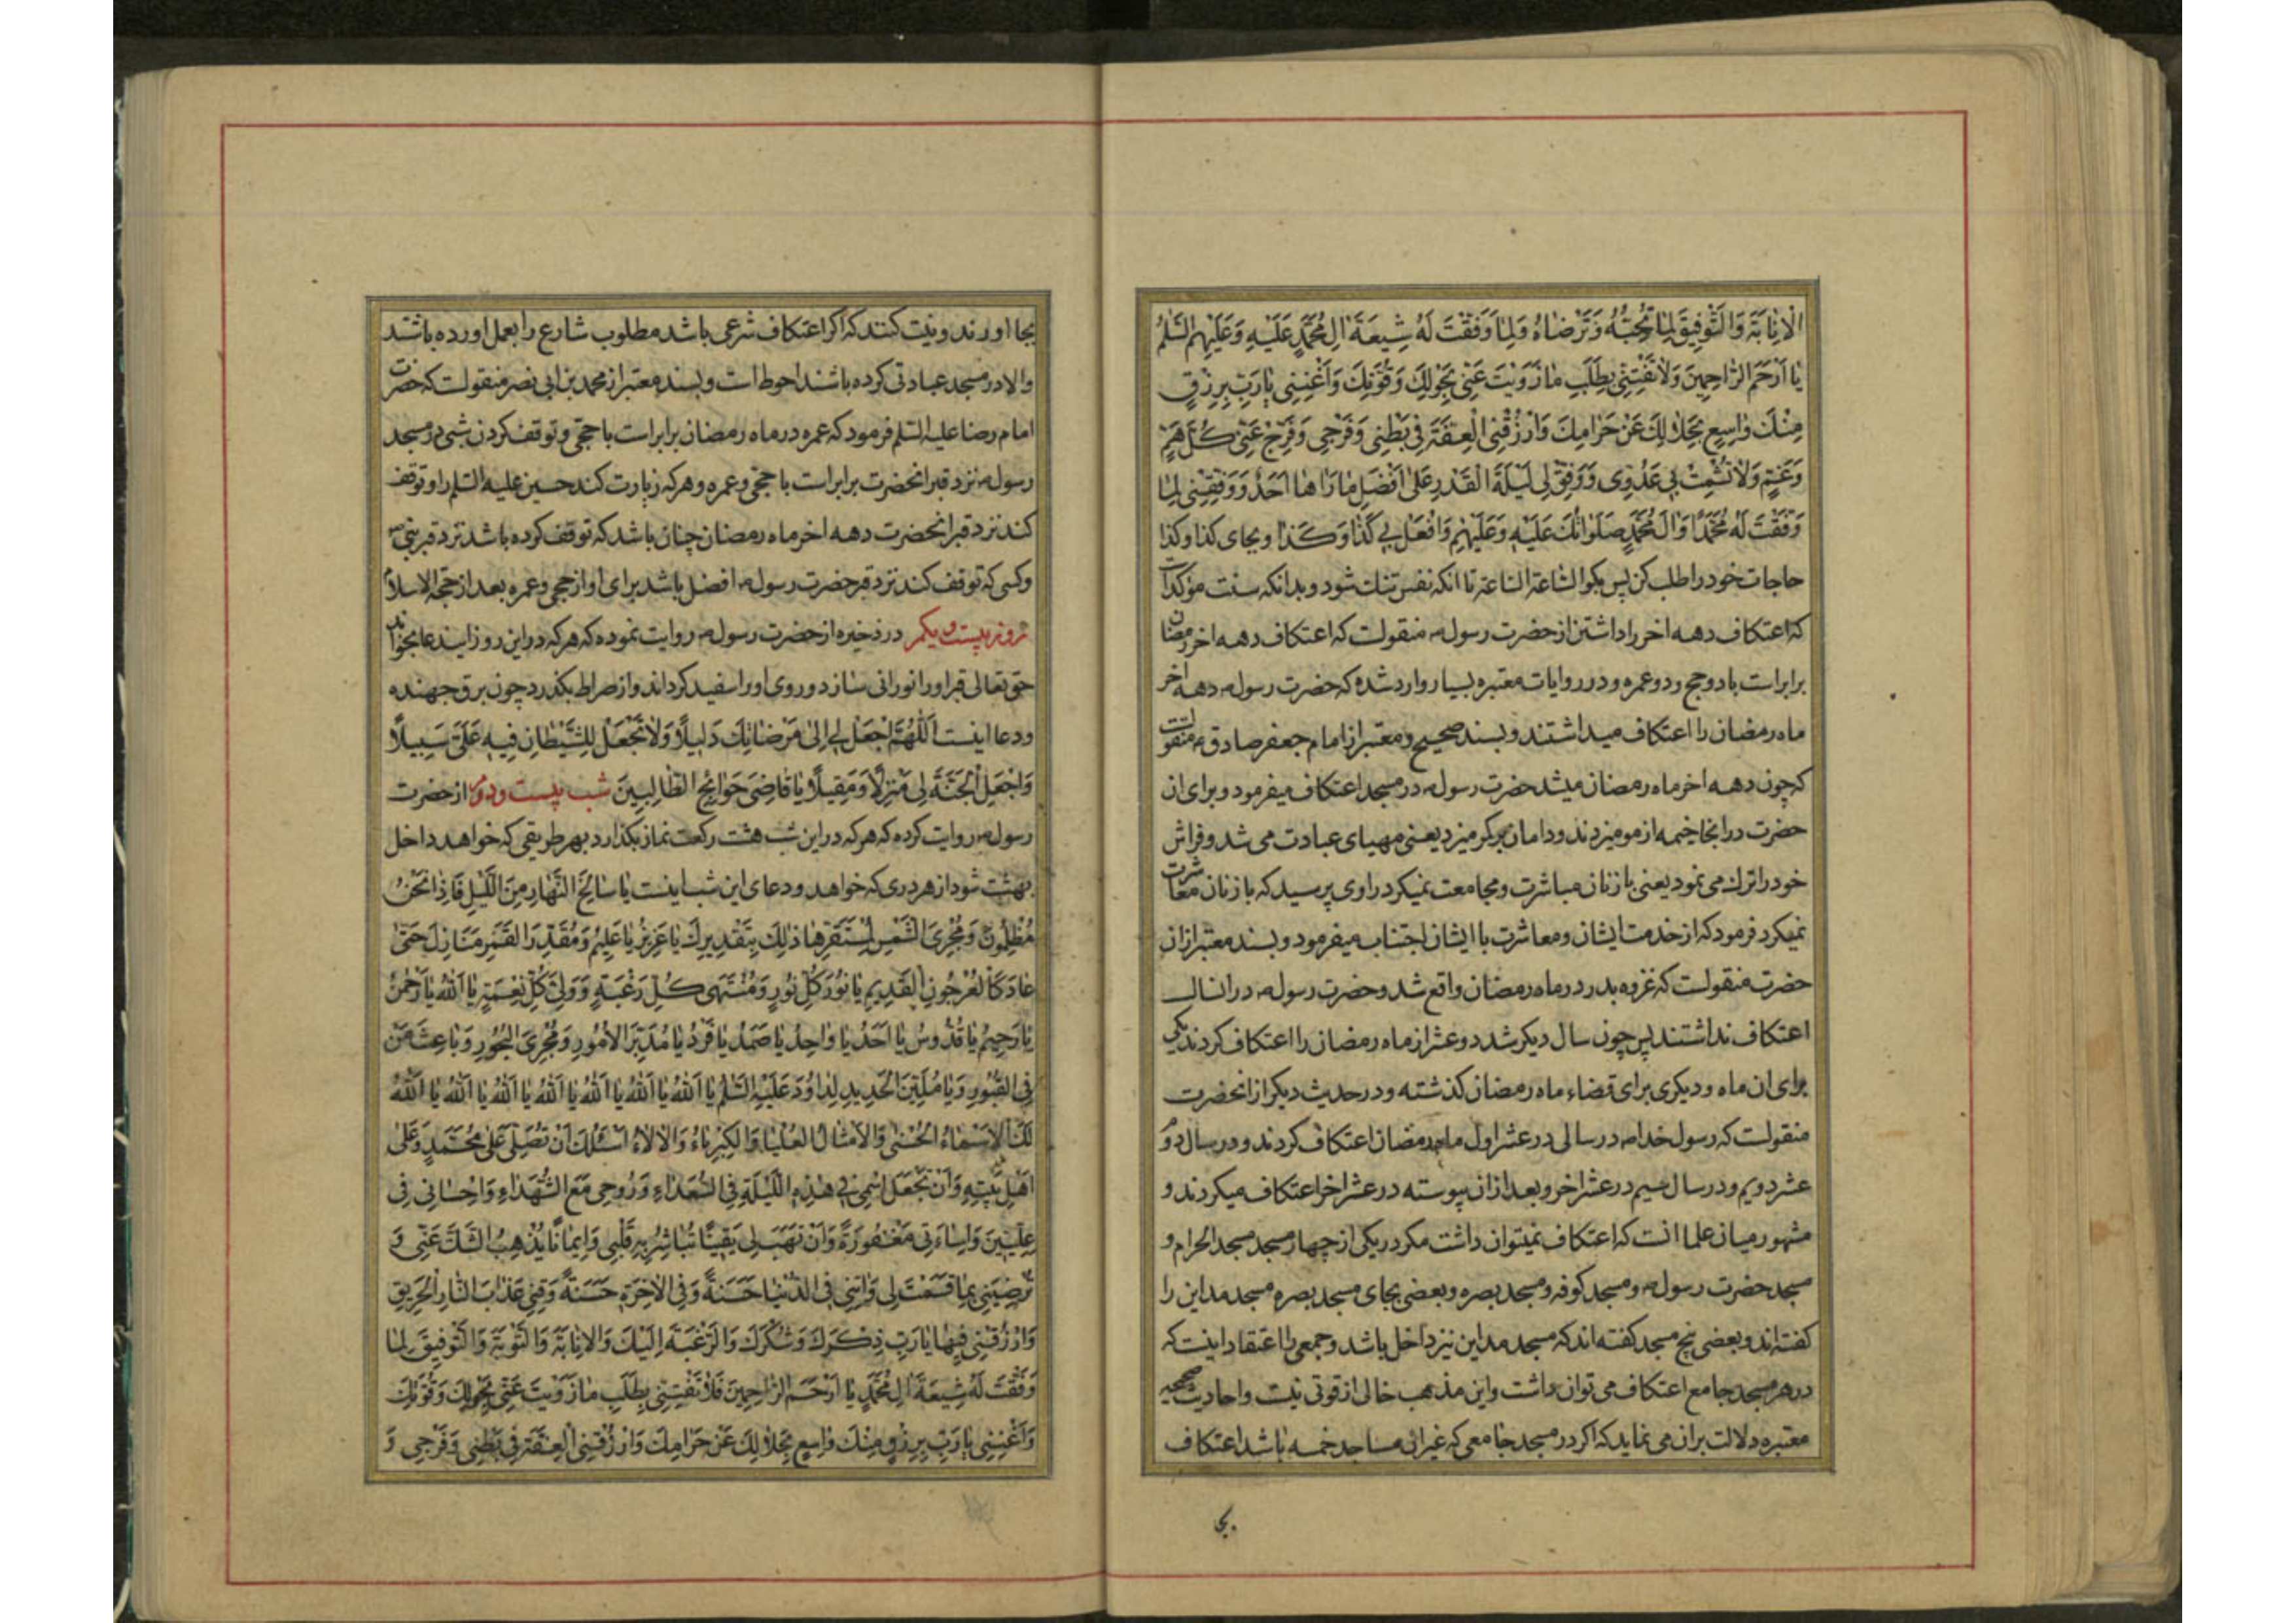 الْاِنٰابَةَ وَالتَّوْفِيقَ لِمٰا تُحِبُّهُ وَتَرْضٰاهُ وَلِمٰا وَفَّقْتَ لَهُ شِيعَةَ اٰلِ مُحَمَّدٍ عَلَيْهِ وَعَلَيْهِمُ السَّلٰمُ
يٰا اَرْحَمَ الرّٰاحِمِينَ وَلٰا تَفْتِنِّى بِطَلَبِ مٰا زَوَيْتَ عَنّى بِحَوْلِكَ وَقُوَّتِكَ وَاَغْنِنِى يٰا رَبِّ بِرِزْقٍ
مِنْكَ وٰاسِعٍ بِحَلٰالِكَ عَنْ حَرٰامِكَ وَارْزُقْنِى الْعِفَّةَ فِى بَطْنِى وَفَرْجِى وَفَرِّجْ عَنِّى كُلَّ هَمٍّ
وَغَمٍّ وَلٰا تُشْمِتْ بِى عَدُوِّى وَوَفِّقْ لِى لَيْلَةَ الْقَدْرِ عَلٰى اَفْضَلِ مٰا رَاٰهٰا اَحَدٌ وَوَفِّقْنِى لِمٰا
وَفَّقْتَ لَهُ مُحَمَّدًا وَاٰلَ مُحَمَّدٍ صَلَوٰاتُكَ عَلَيْهِ وَعَلَيْهِمْ وَافْعَلْ بِى كَذٰا وَكَذٰا وبجاى كذا وكذا
حاجات خود را طلب كن پس بكو الساعة الساعة تا انكه نفس تنك شود و بدانكه سنت مؤكد است
كه اعتكاف دهه اخر را داشتن از حضرت رسول ص منقولست كه اعتكاف دهه اخر رمضان
برابر است با دو حج و دو عمره و در روايات معتبره بسيار وارد شده كه حضرت رسول ص دهه اخر
ماه رمضان را اعتكاف ميداشتند و بسند صحيح و معتبر از امام جعفر صادق ع منقولست
كه چون دهه اخر ماه رمضان ميشد حضرت رسول ص در مسجد اعتكاف ميفرمود و براى ان
حضرت در انجا خيمه از مو ميزدند و دامان بر كمر ميزد يعنى مهياى عبادت مى شد و فراش
خود را ترك مى نمود يعنى با زنان مباشرت و مجامعت نميكرد راوى پرسيد كه با زنان معاشرت
نميكرد فرمود كه از خدمت ايشان و معاشرت با ايشان اجتناب ميفرمود و بسند معتبر از ان
حضرت منقولست كه غزوه بدر در ماه رمضان واقع شد و حضرت رسول ص در انسال
اعتكاف نداشتند پس چون سال ديكر شد دو عشر از ماه رمضان را اعتكاف كردند يكى
براى ان ماه و ديكرى براى قضاء ماه رمضان كذشته و در حديث ديكر از انحضرت
منقولست كه رسول خدا ص در سالى در عشر اول ماه رمضان اعتكاف كردند و در سال دوم
عشر دويم و در سال سيم در عشر اخر و بعد از ان پيوسته در عشر اخر اعتكاف ميكردند و
مشهور ميان علما انست كه اعتكاف نميتوان داشت مكر در يكى از چهار مسجد مسجد الحرام و
مسجد حضرت رسول ص و مسجد كوفه و مسجد بصره و بعضى بجاى مسجد بصره مسجد مداين را
كفته اند و بعضى پنج مسجد كفته اند كه مسجد مداين نيز داخل باشد و جمعى را اعتقاد اينست كه
در هر مسجد جامع اعتكاف مى توان داشت و اين مذهب خالى از قوتى نيست و احاديث صحيحه
معتبره دلالت بر ان مى نمايد كه اكر در مسجد جامعى كه غير ان مساجد خمسه باشد اعتكاف
بجا
بجا اورند و نيت كنند كه اكر اعتكاف شرعى باشد مطلوب شارع را بعمل اورده باشند
والا در مسجد عبادتى كرده باشند احوط است و بسند معتبر از محمد بن ابى نصر منقولست كه حضرت
امام رضا عليه السلم فرمود كه عمره در ماه رمضان برابر است با حجى و توقف كردن شبى در مسجد
رسول ص نزد قبر انحضرت برابر است با حجى و عمره و هر كه زيارت كند حسين عليه السلم را و توقف
كند نزد قبر انحضرت دهه اخر ماه رمضان چنان باشد كه توقف كرده باشد نزد قبر نبى ص
و كسى كه توقف كند نزد قبر حضرت رسول ص افضل باشد براى او از حجى و عمره بعد از حجة الاسلام
روز بيست و يكم در ذخيره از حضرت رسول ص روايت نموده كه هر كه در اين روز ايندعا بخواند
حق تعالى قبر او را نورانى سازد و روى او را سفيد كرداند و از صراط بكذرد چون برق جهنده
و دعا اينست اَللّٰهُمَّ اجْعَلْ لِى اِلٰى مَرْضٰاتِكَ دَلِيلًا وَلٰا تَجْعَلْ لِلشَّيْطٰانِ فِيهِ عَلَىَّ سَبِيلًا
وَاجْعَلِ الْجَنَّةَ لِى مَنْزِلًا وَمَقِيلًا يٰا قٰاضِىَ حَوٰائِجِ الطّٰالِبِينَ شب بيست و دوم از حضرت
رسول ص روايت كرده كه هر كه در اين شب هشت ركعت نماز بكذارد بهر طريقى كه خواهد داخل
بهشت شود از هر درى كه خواهد و دعاى اين شب اينست يٰا سٰالِخَ النَّهٰارِ مِنَ اللَّيْلِ فَاِذٰا نَحْنُ
مُظْلِمُونَ وَمُجْرِىَ الشَّمْسِ لِمُسْتَقَرِّهٰا ذٰلِكَ بِتَقْدِيرِكَ يٰا عَزِيزُ يٰا عَلِيمُ وَمُقَدِّرَ الْقَمَرِ مَنٰازِلَ حَتّٰى
عٰادَ كَالْعُرْجُونِ الْقَدِيمِ يٰا نُورَ كُلِّ نُورٍ وَمُنْتَهٰى كُلِّ رَغْبَةٍ وَوَلِىَّ كُلِّ نِعْمَةٍ يٰا اَللّٰهُ يٰا رَحْمٰنُ
يٰا رَحِيمُ يٰا قُدُّوسُ يٰا اَحَدُ يٰا وٰاحِدُ يٰا صَمَدُ يٰا فَرْدُ يٰا مُدَبِّرَ الْاُمُورِ وَمُجْرِىَ الْبُحُورِ وَيٰا بٰاعِثَ مَنْ
فِى الْقُبُورِ وَيٰا مُلَيِّنَ الْحَدِيدِ لِدٰاوُدَ عَلَيْهِ السَّلٰمُ يٰا اَللّٰهُ يٰا اَللّٰهُ يٰا اَللّٰهُ يٰا اَللّٰهُ يٰا اَللّٰهُ يٰا اَللّٰهُ
لَكَ الْاَسْمٰاءُ الْحُسْنٰى وَالْاَمْثٰالُ الْعُلْيٰا وَالْكِبْرِيٰاءُ وَالْاٰلٰاءُ اَسْئَلُكَ اَنْ تُصَلِّىَ عَلٰى مُحَمَّدٍ وَعَلٰى
اَهْلِ بَيْتِهِ وَاَنْ تَجْعَلَ اسْمِى فِى هٰذِهِ اللَّيْلَةِ فِى السُّعَدٰاءِ وَرُوحِى مَعَ الشُّهَدٰاءِ وَاِحْسٰانِى فِى
عِلِّيّيِنَ وَاِسٰاءَتِى مَغْفُورَةً وَاَنْ تَهَبَ لِى يَقِينًا تُبٰاشِرُ بِهِ قَلْبِى وَاِيمٰانًا يُذْهِبُ الشَّكَّ عَنِّى وَ
تُرْضِيَنِى بِمٰا قَسَمْتَ لِى وَاٰتِنِى فِى الدُّنْيٰا حَسَنَةً وَفِى الْاٰخِرَةِ حَسَنَةً وَقِنِى عَذٰابَ النّٰارِ الْحَرِيقِ
وَارْزُقْنِى فِيهٰا يٰا رَبِّ ذِكْرَكَ وَشُكْرَكَ وَالرَّغْبَةَ اِلَيْكَ وَالْاِنٰابَةَ وَالتَّوْبَةَ وَالتَّوْفِيقَ لِمٰا
وَفَّقْتَ لَهُ شِيعَةَ اٰلِ مُحَمَّدٍ يٰا اَرْحَمَ الرّٰاحِمِينَ فَلٰا تَفْتِنِّى بِطَلَبِ مٰا زَوَيْتَ عَنِّى بِحَوْلِكَ وَقُوَّتِكَ
وَاَغْنِنِى يٰا رَبِّ بِرِزْقٍ مِنْكَ وٰاسِعٍ بِحَلٰالِكَ عَنْ حَرٰامِكَ وَارْزُقْنِى الْعِفَّةَ فِى بَطْنِى وَفَرْجِى وَ